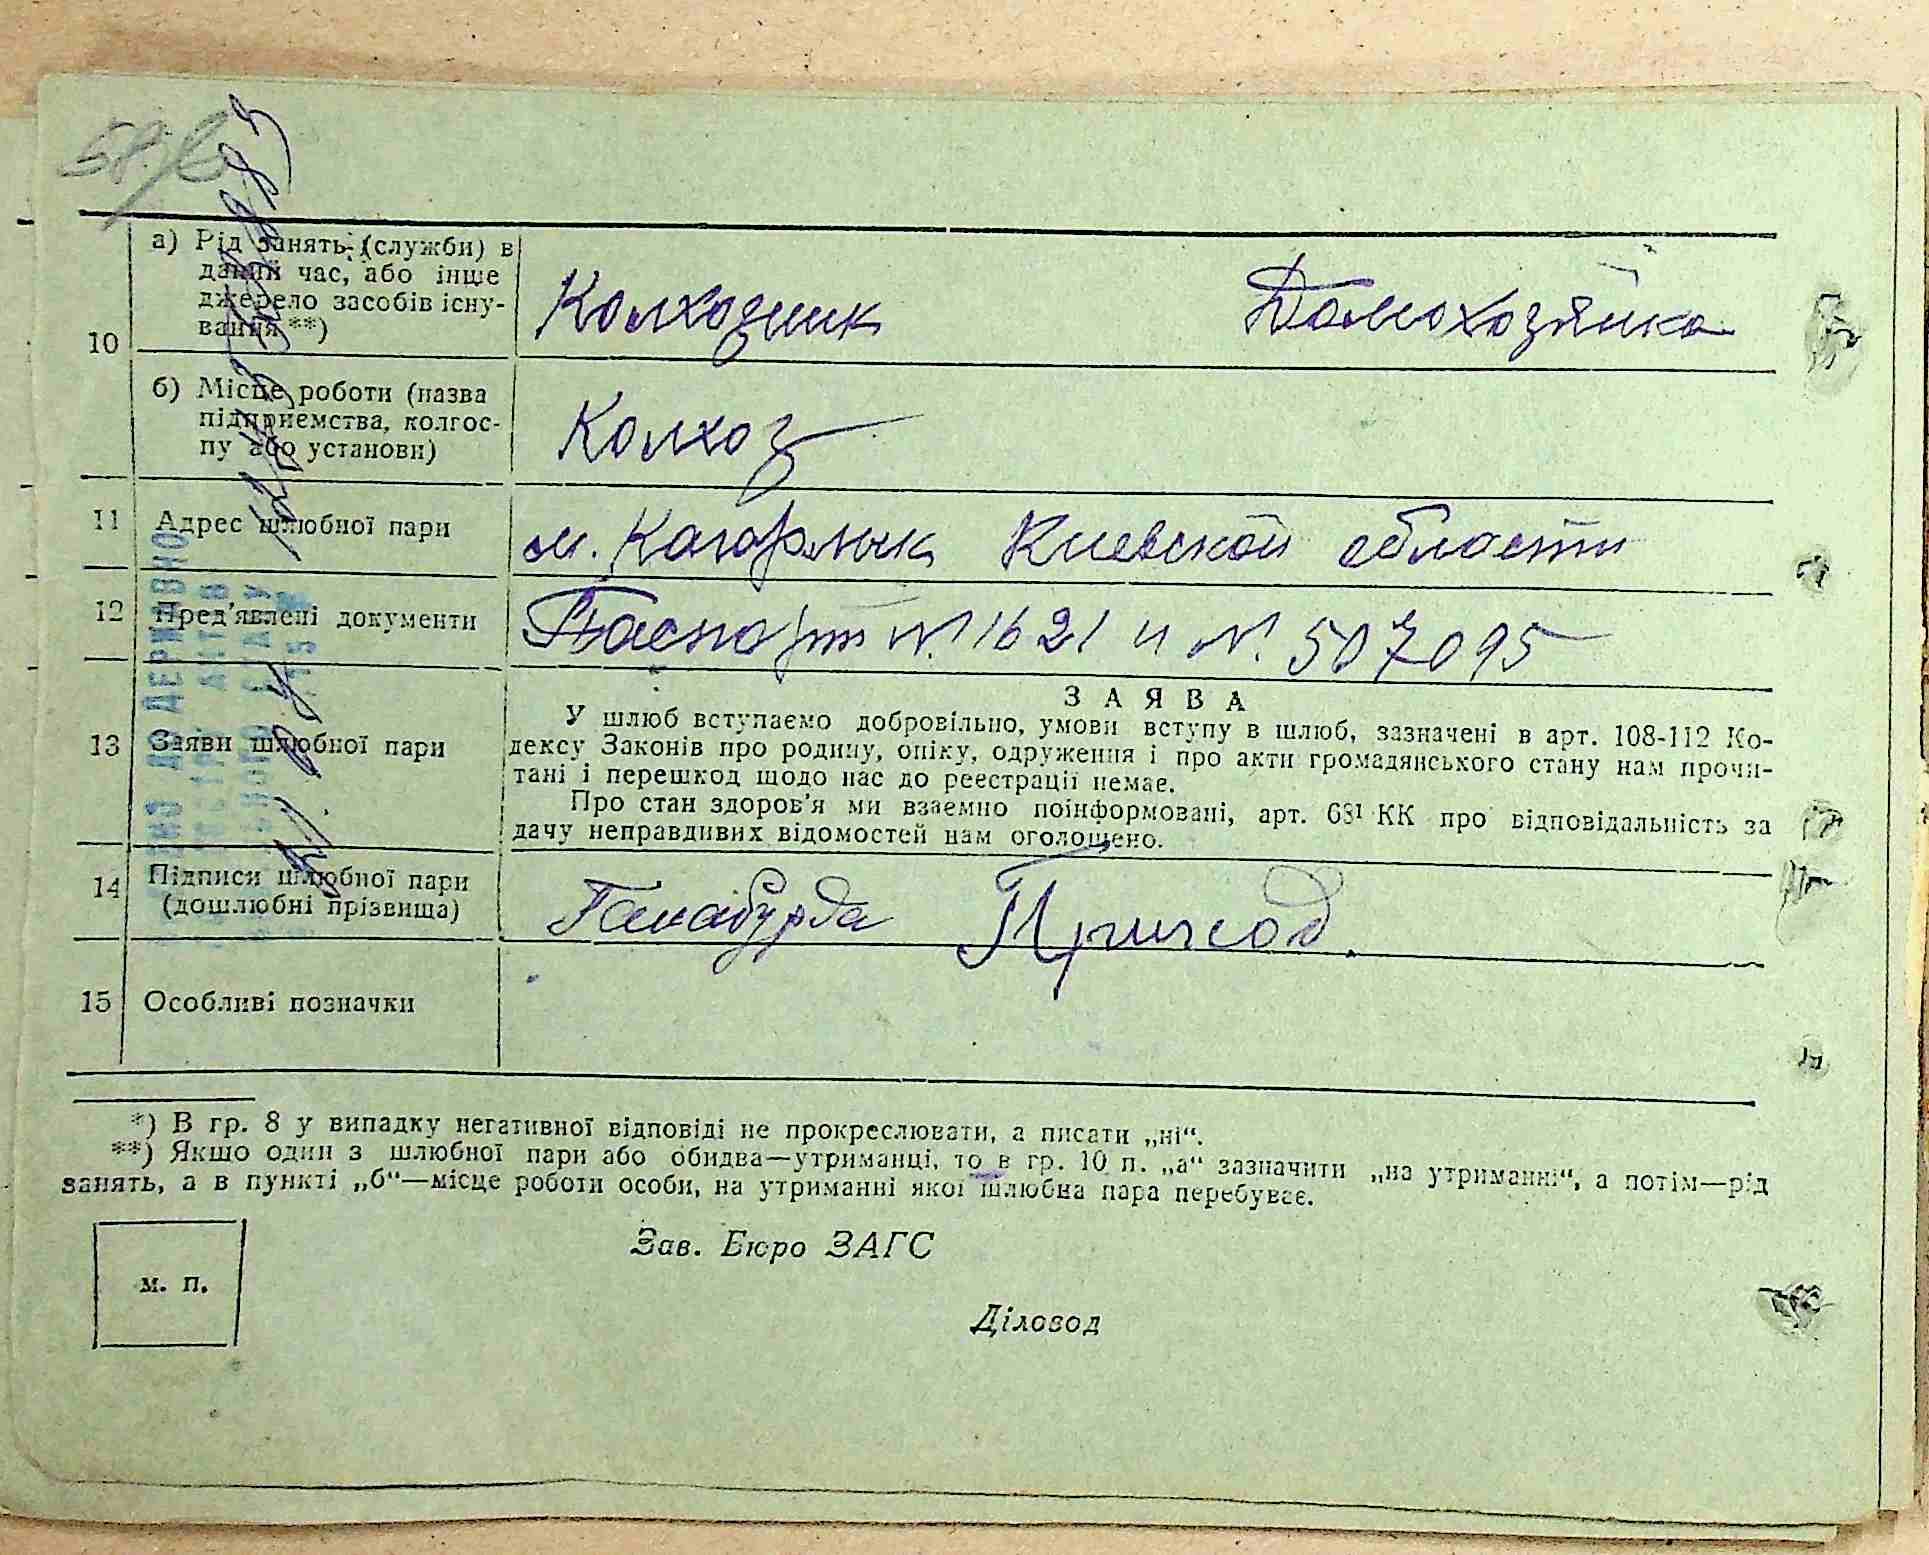 10
а) Рід занять (служби) в
даний час, або інше
джерело засобів існу-
вання **)
Колхозник Домохозяйка
б) Місце роботи (назва
підприємства, колгос-
пу або установи)
Колхоз
11 Адрес шлюбної пари м. Кагарлык Киевской области
12 Пред'явлені документи Паспорт N. 1621 и N. 507095
13 Заяви шлюбної пари
ЗАЯВА
У шлюб вступаємо добровільно, умови вступу в шлюб, зазначені в арт. 108-112 Ко-
дексу Законів про родину, опіку, одруження і про акти громадянського стану нам прочи-
тані і перешкод щодо нас до реєстрації немає.
Про стан здоров'я ми взаємно поінформовані, арт. 68¹ КК про відповідальність за
дачу неправдивих відомостей нам оголошено.
14 Підписи шлюбної пари
(дошлюбні прізвища)
Ганабурда Приход
15 Особливі позначки
*) В гр. 8 у випадку негативної відповіді не прокреслювати, а писати „ні“.
**) Якшо один з шлюбної пари або обидва—утриманці, то в гр. 10 п. „а“ зазначити „на утриманні“, а потім—рід
занять, а в пункті „б“—місце роботи особи, на утриманні якої шлюбна пара перебуває.
Зав. Бюро ЗАГС
м. п.
Діловод